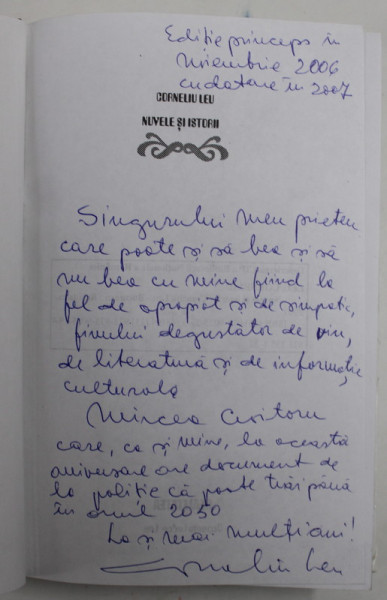 Ediție princeps în
noiembrie 2006
cu datare în 2007
CORNELIU LEU
NUVELE ȘI ISTORII
Singurului meu prieten
care poate și să bea și să
nu bea cu mine fiind la
fel de apropiat și de simpatic,
finului degustător de vin,
de literatură și de informație
culturală
Mircea
care, ca și mine, la această
aniversare are document de
la poliție că poate trăi până
în anul 2050
La și mai mulți ani!
Corneliu Leu